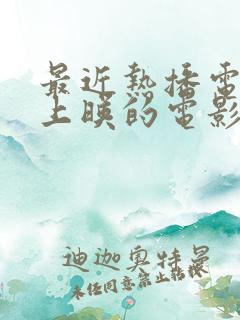 最近熱播電
上映的電影
迪迦奥特曼
未经同意禁止转换